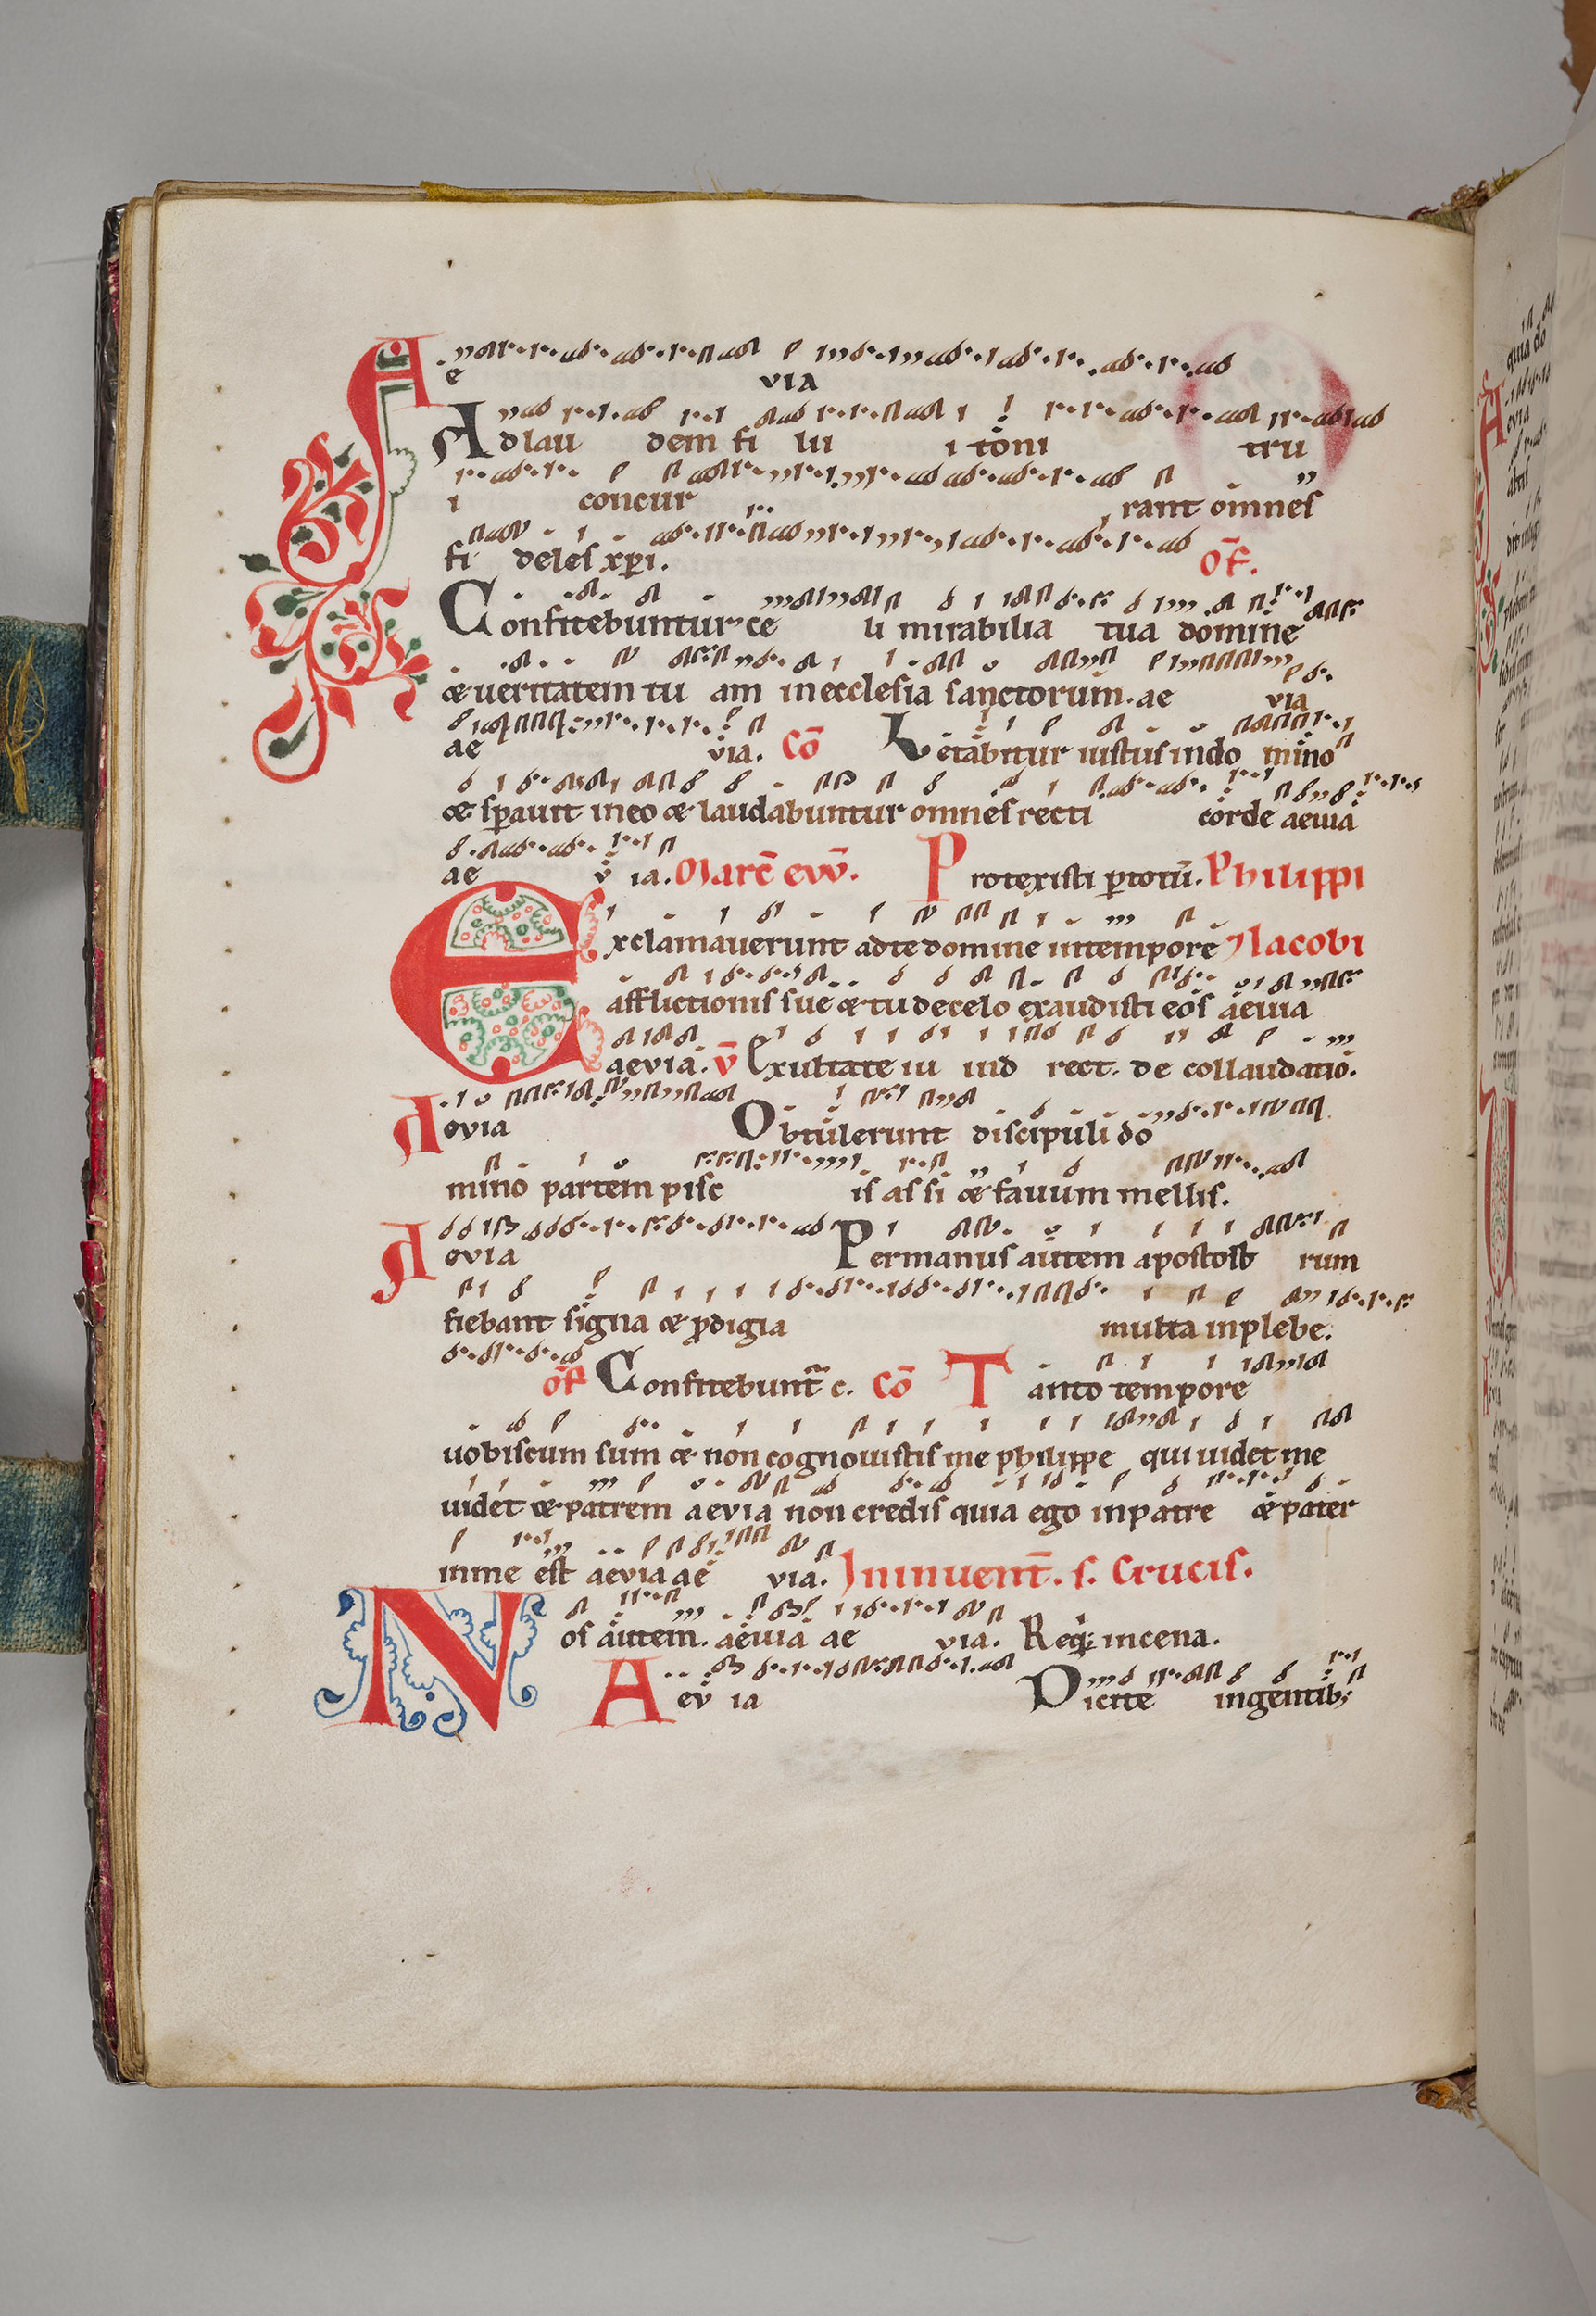 Ae via
Ad lau dem fi lii i toni tru
i concur rant omnes
fi deles xp̄i. of̄.
Confitebuntur ce li mirabilia tua domine
& ueritatem tu am in ecclesia sanctorum. ae via
ae via. Cō Letabitur iustus in do mino
& sp̄auit in eo & laudabuntur omnes recti corde aeuia
ae v ia. Marc̄ evv̄. Protexisti p̄ totū. Philippi
Exclamauerunt ad te domine in tempore Iacobi
afflictionis sue & tu de celo exaudisti eos aeuia
aevia. v̄ Exultate iu iud rect. de collaudatio.
Aovia Obtulerunt discipuli do
mino partem pisc is as si & fauum mellis.
Aovia Per manus autem apostolo rum
fiebant signa & p̄digia multa in plebe.
of̄ Confitebunt̄ c. Cō Tanto tempore
uobiscum sum & non cognouistis me philippe qui uidet me
uidet & patrem aevia non credis quia ego in patre & pater
in me est aevia ae via. In inuent̄. s. Crucis.
Nos autem. aeuia ae via. Req; in cena.
Aev ia Dicite in gentib;